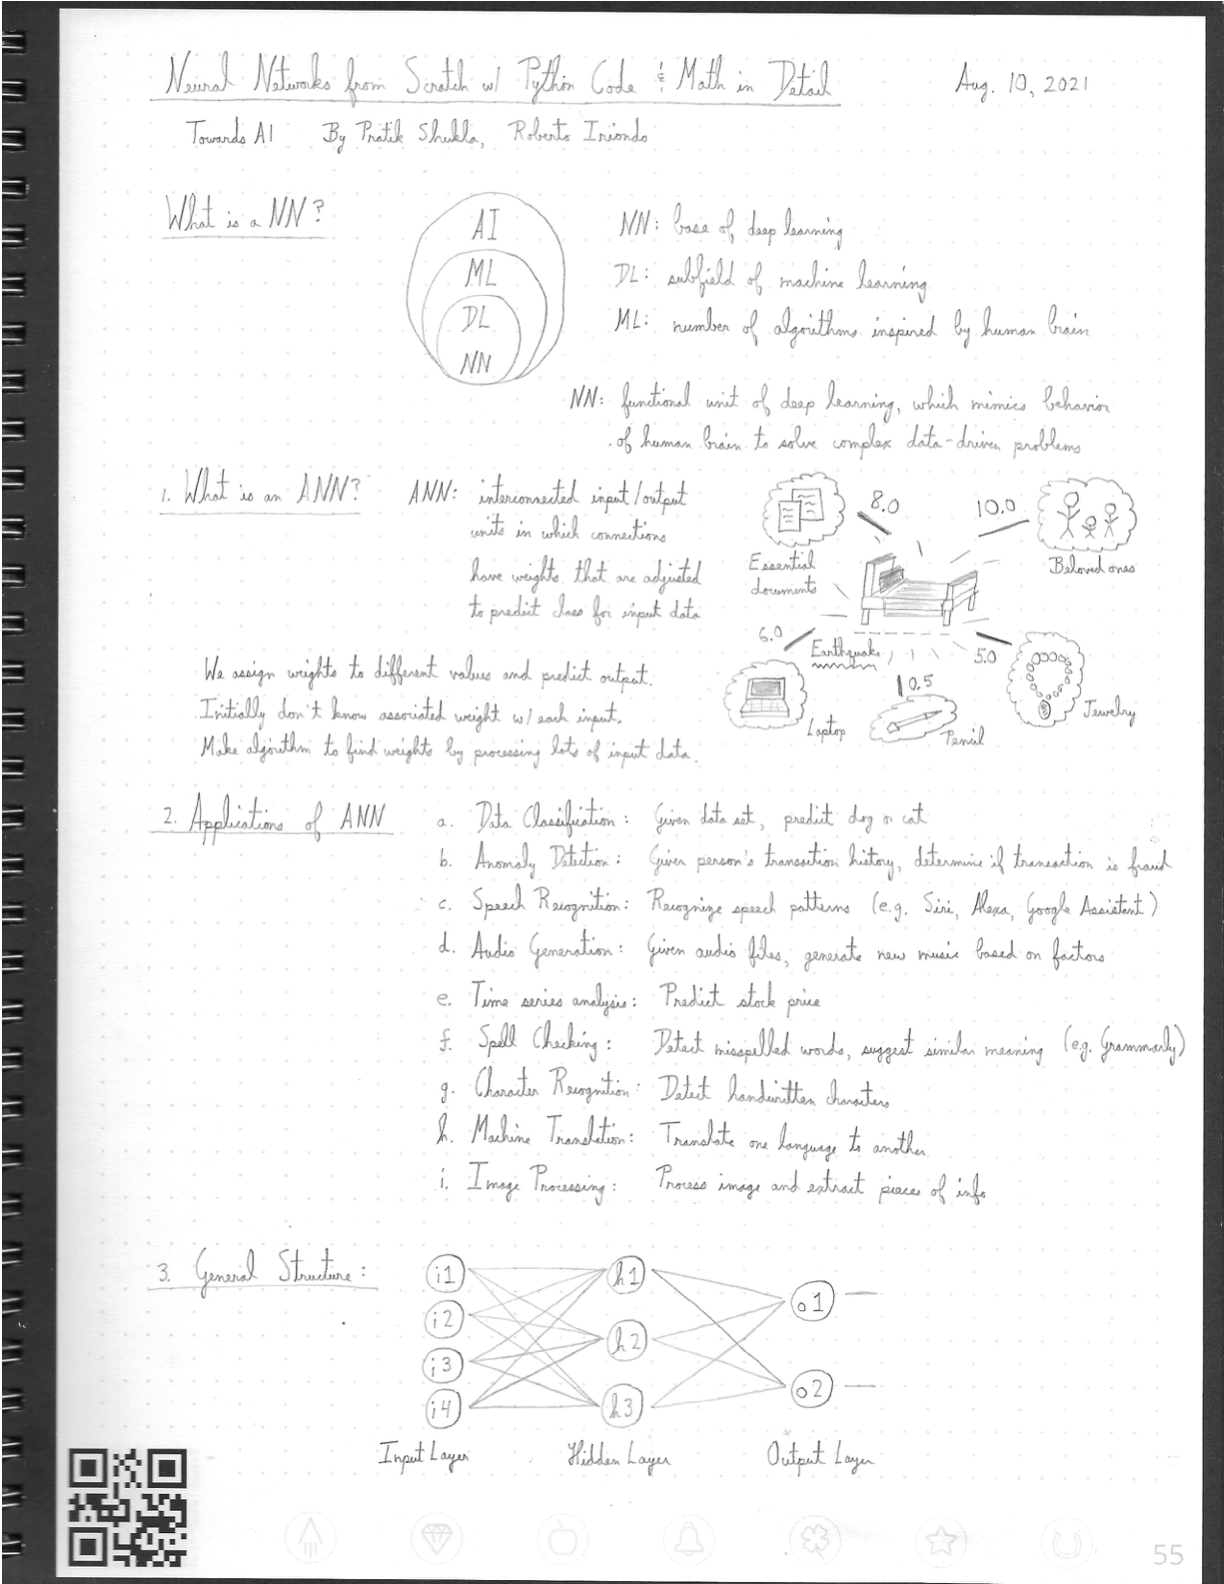 Neural Networks from Scratch w/ Python Code & Math in Detail
Aug. 10, 2021
Towards AI By Pratik Shukla, Roberto Iriondo
What is a NN?
AI
ML
DL
NN
NN: base of deep learning
DL: subfield of machine learning
ML: number of algorithms inspired by human brain
NN: functional unit of deep learning, which mimics behavior
of human brain to solve complex data-driven problems
1. What is an ANN?
ANN: interconnected input/output
units in which connections
have weights that are adjusted
to predict class for input data
8.0
10.0
Essential
documents
Beloved ones
6.0
Earthquake
5.0
0.5
Laptop
Pencil
Jewelry
We assign weights to different values and predict output.
Initially don't know associated weight w/ each input.
Make algorithm to find weights by processing lots of input data.
2. Applications of ANN
a. Data Classification: Given data set, predict dog or cat
b. Anomaly Detection: Given person's transaction history, determine if transaction is fraud
c. Speech Recognition: Recognize speech patterns (e.g. Siri, Alexa, Google Assistant)
d. Audio Generation: Given audio files, generate new music based on factors
e. Time series analysis: Predict stock price
f. Spell Checking: Detect misspelled words, suggest similar meaning (e.g. Grammarly)
g. Character Recognition: Detect handwritten characters
h. Machine Translation: Translate one language to another
i. Image Processing: Process image and extract pieces of info
3. General Structure:
i1
h1
o1
i2
h2
i3
o2
i4
h3
Input Layer
Hidden Layer
Output Layer
55